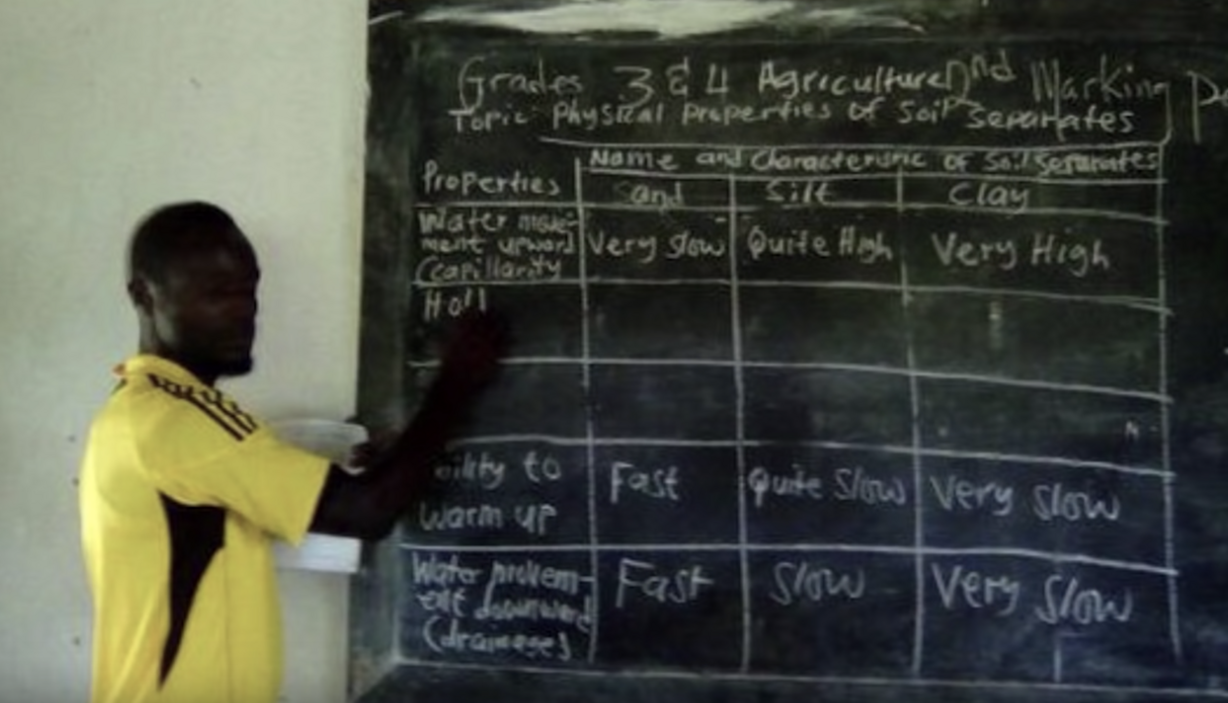 Grades 3 & 4 Agriculture 2nd Marking
Topic: Physical Properties of Soil Separates
Name and Characteristic of Soil Separates
Properties Sand Silt Clay
Water move-
ment upward Very slow Quite High Very High
(capillarity
Holl
ility to Fast Quite Slow Very Slow
warm up
Water
downward Fast Slow Very Slow
(drainage)